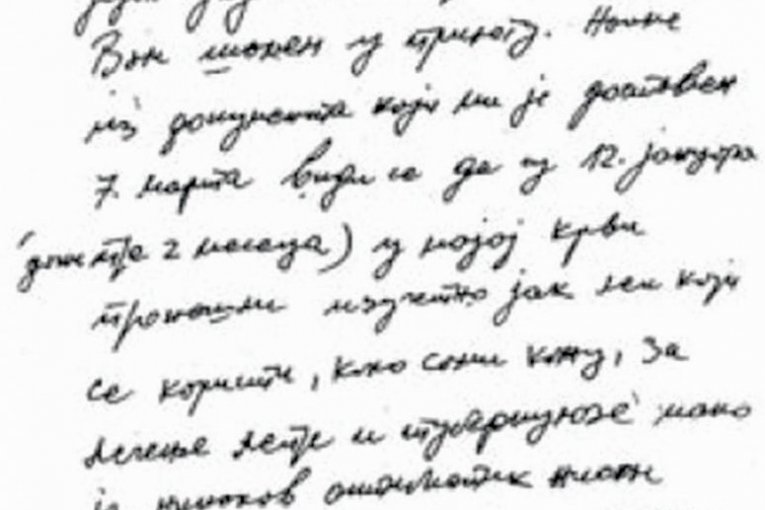 Вам шаљем у прилогу. Наиме
из документа који ми је достављен
7. марта види се да су 12. јануара
пре 2 месеца) у мојој крви
пронашли изузетно јак лек који
се користи, како сами кажу, за
лечење лепре и туберкулозе мако
је никаков антибиотик нисам